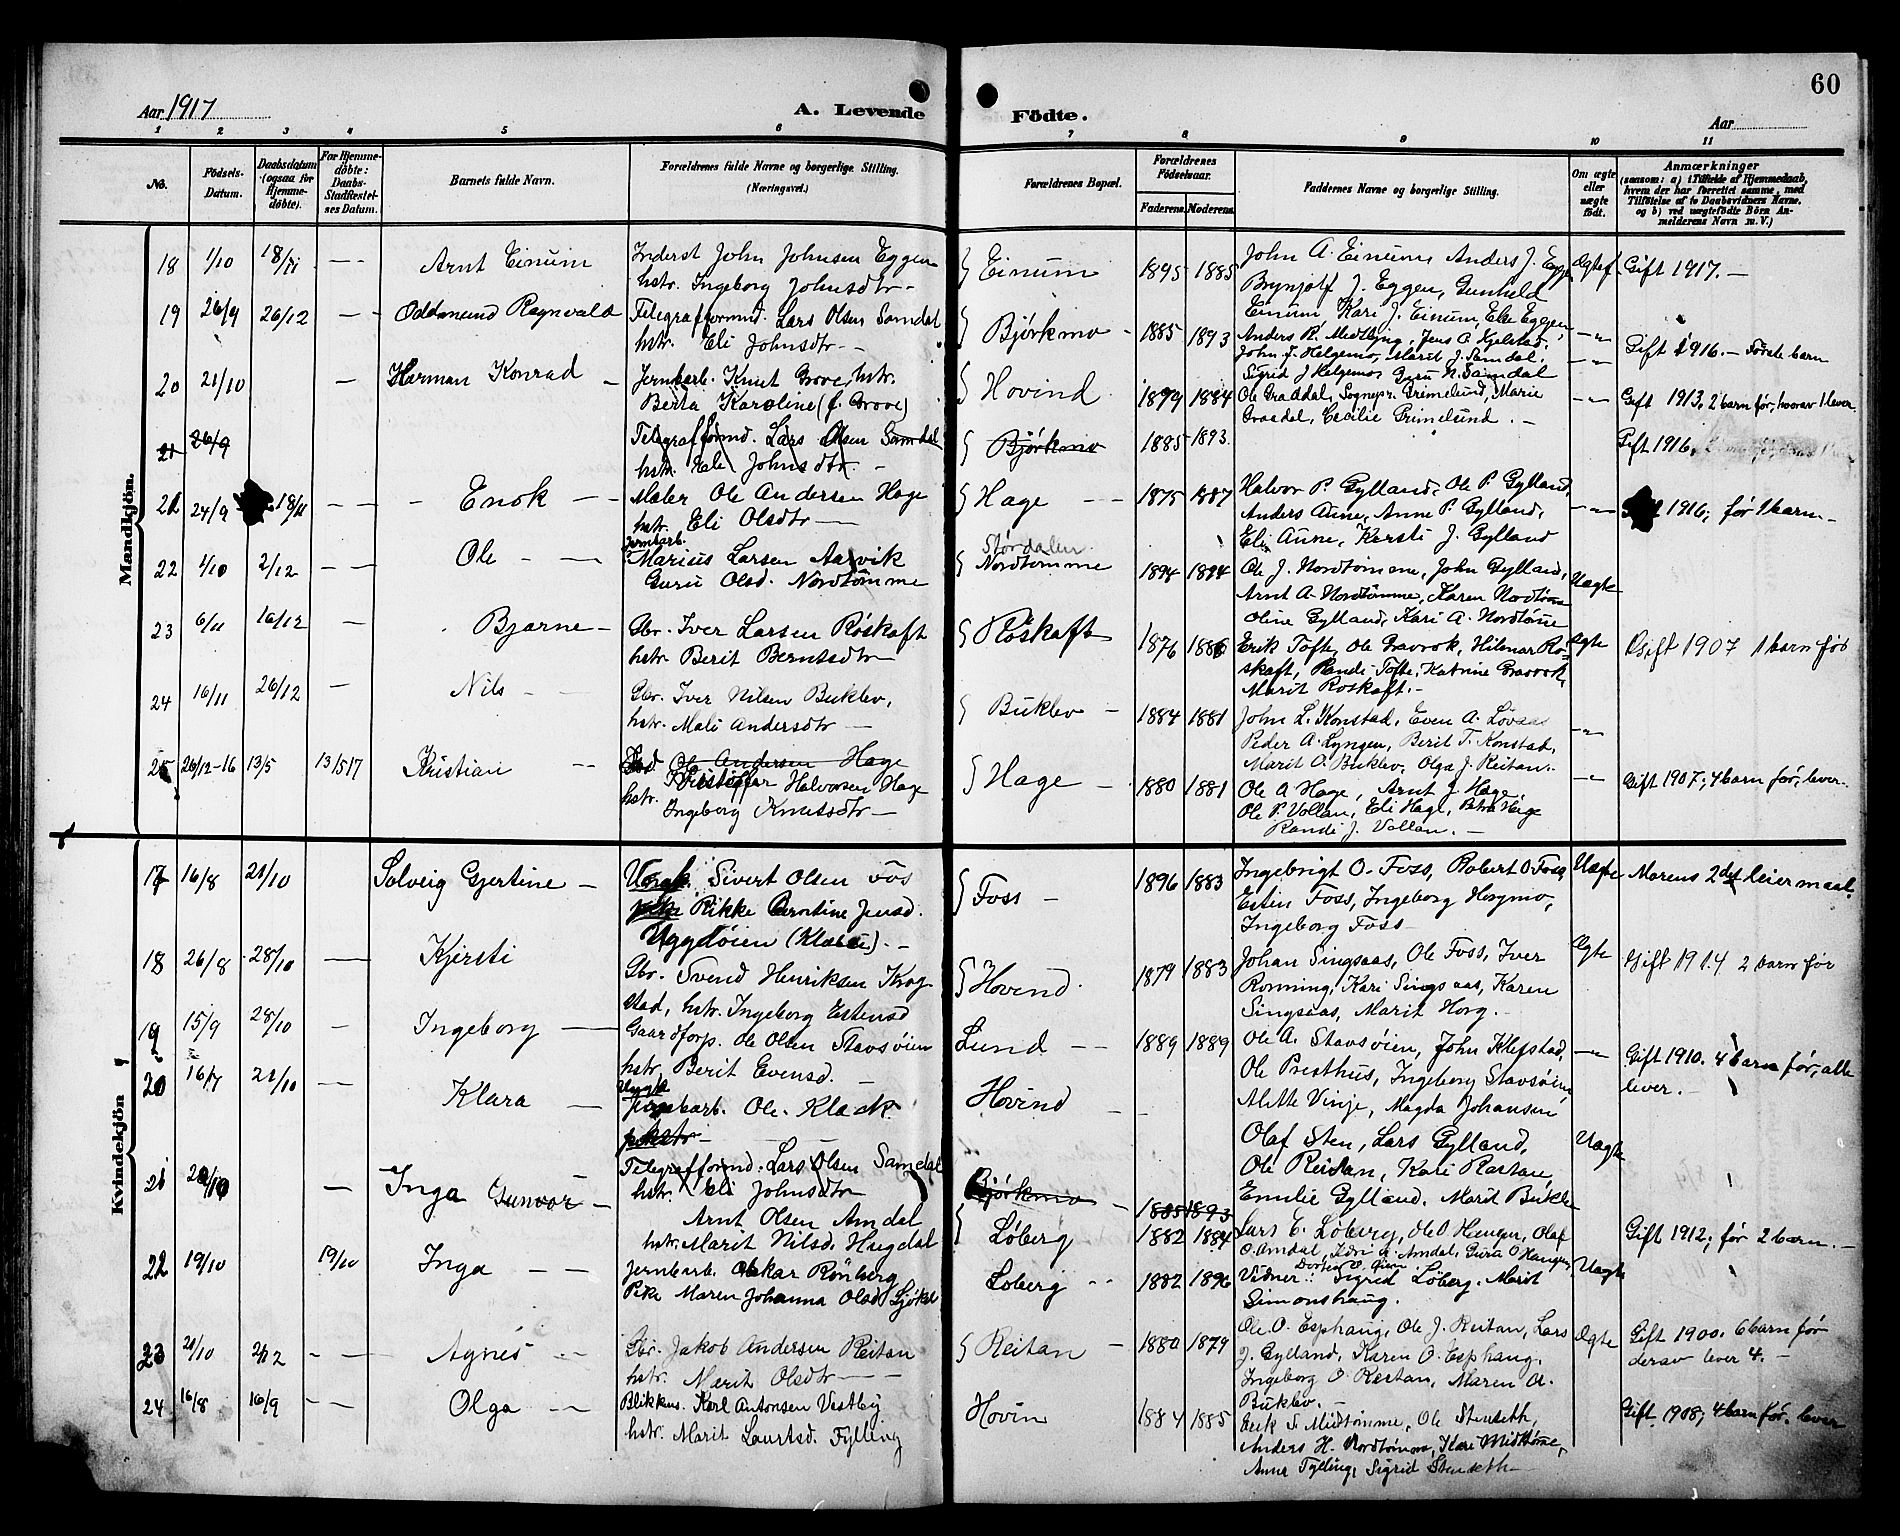 60
Aar 1917
A. Levende
Födte.
Aar
1 2 3 4 5 6 7 8 9 10 11
No.
Födsels-Datum.
Daabsdatum (ogsaa for Hjemmedöbte).
For Hjemmedöbte: Daabs-Stadfæstelses Datum.
Barnets fulde Navn.
Forældrenes fulde Navne og borgerlige Stilling.
(Næringsvei.)
Forældrenes Bopæl.
Forældrenes Födselsaar.
Faderens. Moderens.
Faddernes Navne og borgerlige Stilling.
Om ægte eller uægte födt.
Anmærkninger
(saasom: a) i Tilfælde af Hjemmedaab, hvem der har forrettet samme, med Tilföielse af to Daabsvidners Navne, og b) ved uægtefödte Börn Anmelderens Navn m. V.)
Mandkjön.
18 1/10 18/11 — Arnt Einum
Inderst John Johnsen Eggen
hstr. Ingeborg Johnsdtr —
Einum 1895 1885
John A. Einum, Anders J. Eggen
Brynjolf J. Eggen, Gunhild
Einum Kari J. Einum, Eli Eggen
Ægtef. Gift 1917. —
19 26/9 26/12 — Oddmund Ragnvald
Telegrafformd. Lars Olsen Samdal
hstr. Eli Johnsdtr —
Bjørkmo 1885 1893
Anders R. Medbjing, Jens A. Kjelstad,
John J. Helgemo, Marit J. Samdal,
Sigrid J Helgemo Guru N. Samdal
Gift 1916 — Første barn
20 21/10 — Herman Konrad —
Jernbarb. Knut Grove, hstr.
Berta Karoline (f. Grove)
Hovind 1879 1884
Ole Graddal, Sognepr. Grimelund, Marie
Graadal, Cecilie Grimelund. —
Gift 1913, 2 barn før, hvorav 1 lever.
21 26/9
Telegrafformd. Lars Olsen Samdal
hstr. Eli Johnsdtr. —
Bjørkmo 1885 1893.
Gift 1916.
21 24/9 18/11 — Enok —
Maler Ole Andersen Hage
hstr. Eli Olsdtr —
Hage 1875 1887
Halvor P. Gylland, Ole P. Gylland,
Anders Aune, Anne P. Gylland,
Eli Aune, Kersti J. Gylland
1916; før 1 barn —
22 1/10 2/12 — Ole —
Jernbarb.
Marius Larsen Aasvik
Guru Olsd. Nordtømme
Størdalen
Nordtømme 1894 1894
Ole J. Nordtømme, John Gylland,
Arnt A. Nordtømme, Karen Nordtømme
Oline Gylland, Kari A. Nordtømme
Uægte
23 6/11 16/12 — Bjarne —
Gbr. Iver Larsen Røskaft
hstr. Berit Berntsdtr —
Røskaft 1876 1886
Erik Tofte, Ole Gravrok, Hilmar Røskaft, Randi Tofte, Katrine Gravrok,
Marit Røskaft. —
Ægte Gift 1907 1 barn før
24 16/11 26/12 — Nils —
Gbr. Iver Nilsen Buklev,
hstr. Mali Andersdtr —
Buklev 1884 1881
John L. Konstad, Even A. Løvaas
Peder A. Lyngen, Berit T. Konstad,
Marit O. Buklev, Olga J. Reitan.
25 26/12-16 13/5 13/5 17 Kristian —
Ole Andersen Hage
Kristoffer Halvorsen Hage
hstr. Ingeborg Knutsdtr —
Hage 1880 1881
Ole A Hage, Arnt J. Hage,
Ole P. Vollan, Eli Hage, Petra Hage
Randi J. Vollan. —
Gift 1907; 4 barn før, lever.
Kvindekjön
17 16/8 21/10 Solveig Gjertine —
Ungk. Sivert Olsen Fos
pike Rikke Berntine Jensd.
Uggdøien (Klæbu). —
Foss — 1896 1883
Ingebrigt O. Foss, Robert O Foss,
Esten Foss, Ingeborg Horgmo,
Ingeborg Foss —
Uægte Morens 2det leiermaal.
18 26/8 28/10 — Kjersti
Gbr. Svend Henriksen Krogstad, hstr. Ingeborg Estensd
Hovind. 1879 1883
Johan Singsaas, Ole Foss, Iver
Rønning, Kari Singsaas, Karen
Singsaas, Marit Horg. —
Ægte Gift 1914 2 barn før
19 15/9 28/10 — Ingeborg —
Gaardforp. Ole Olsen Stavsøien
hstr. Berit Evensd. —
Lund — 1889 1889
Ole A. Stavsøien, John Klefstad,
Ole Presthus, Ingeborg Stavsøien
Alette Vinje, Magda Johansen
Gift 1910. 4 barn før, alle
lever. —
20 16/7 21/10 — Klara —
Ungk.
Jernbarb. Ole Klack
Hovind
Olaf Sten, Lars Gylland,
Ole Reitan, Kari Rostan,
Emilie Gylland, Marit Buklev
Uægte
21 20/10 — Inga Gunvor —
Telegrafformd. Lars Olsen Samdal
hstr. Eli Johnsdtr
Arnt Olsen Amdal
hstr. Marit Nilsd. Hugdal
Bjørkmo — 1885 1893
Løberg 1882 1884
Lars E. Løberg, Ole O Haugen, Olaf
O. Amdal, Amdal, Gura O Haugen,
Gift 1912; før 2 barn. —
22 19/10 19/10 Inga —
Jernbarb. Oskar Rönberg
Pike Maren Johanna Olsd.
Løberg 1882 1896
Vidner: Sigrid Løberg. Marit
Simonshaug.
Uægte
23 21/10 2/12 — Agnes —
Gbr. Jakob Andersen Reitan
hstr. Marit Olsdtr —
Reitan — 1880 1879
Ole O. Esphaug, Ole J. Reitan, Lars
J. Gylland, Karen O. Esphaug,
Ingeborg O. Rostan, Maren A.
Buklev. —
Ægte Gift 1900. 6 barn før
derav lever 4. —
24 16/8 16/9 — Olga —
Blikksl. Karl Antonsen Vestby
hstr. Marit Lauritsd. Fylling
Hovin 1884 1885
Erik S. Midtømme, Ole Stenseth,
Anders H. Nordtømme, Kari Midtømme,
Anne Fylling, Sigrid Stenseth —
Gift 1908; 4 barn før. lever